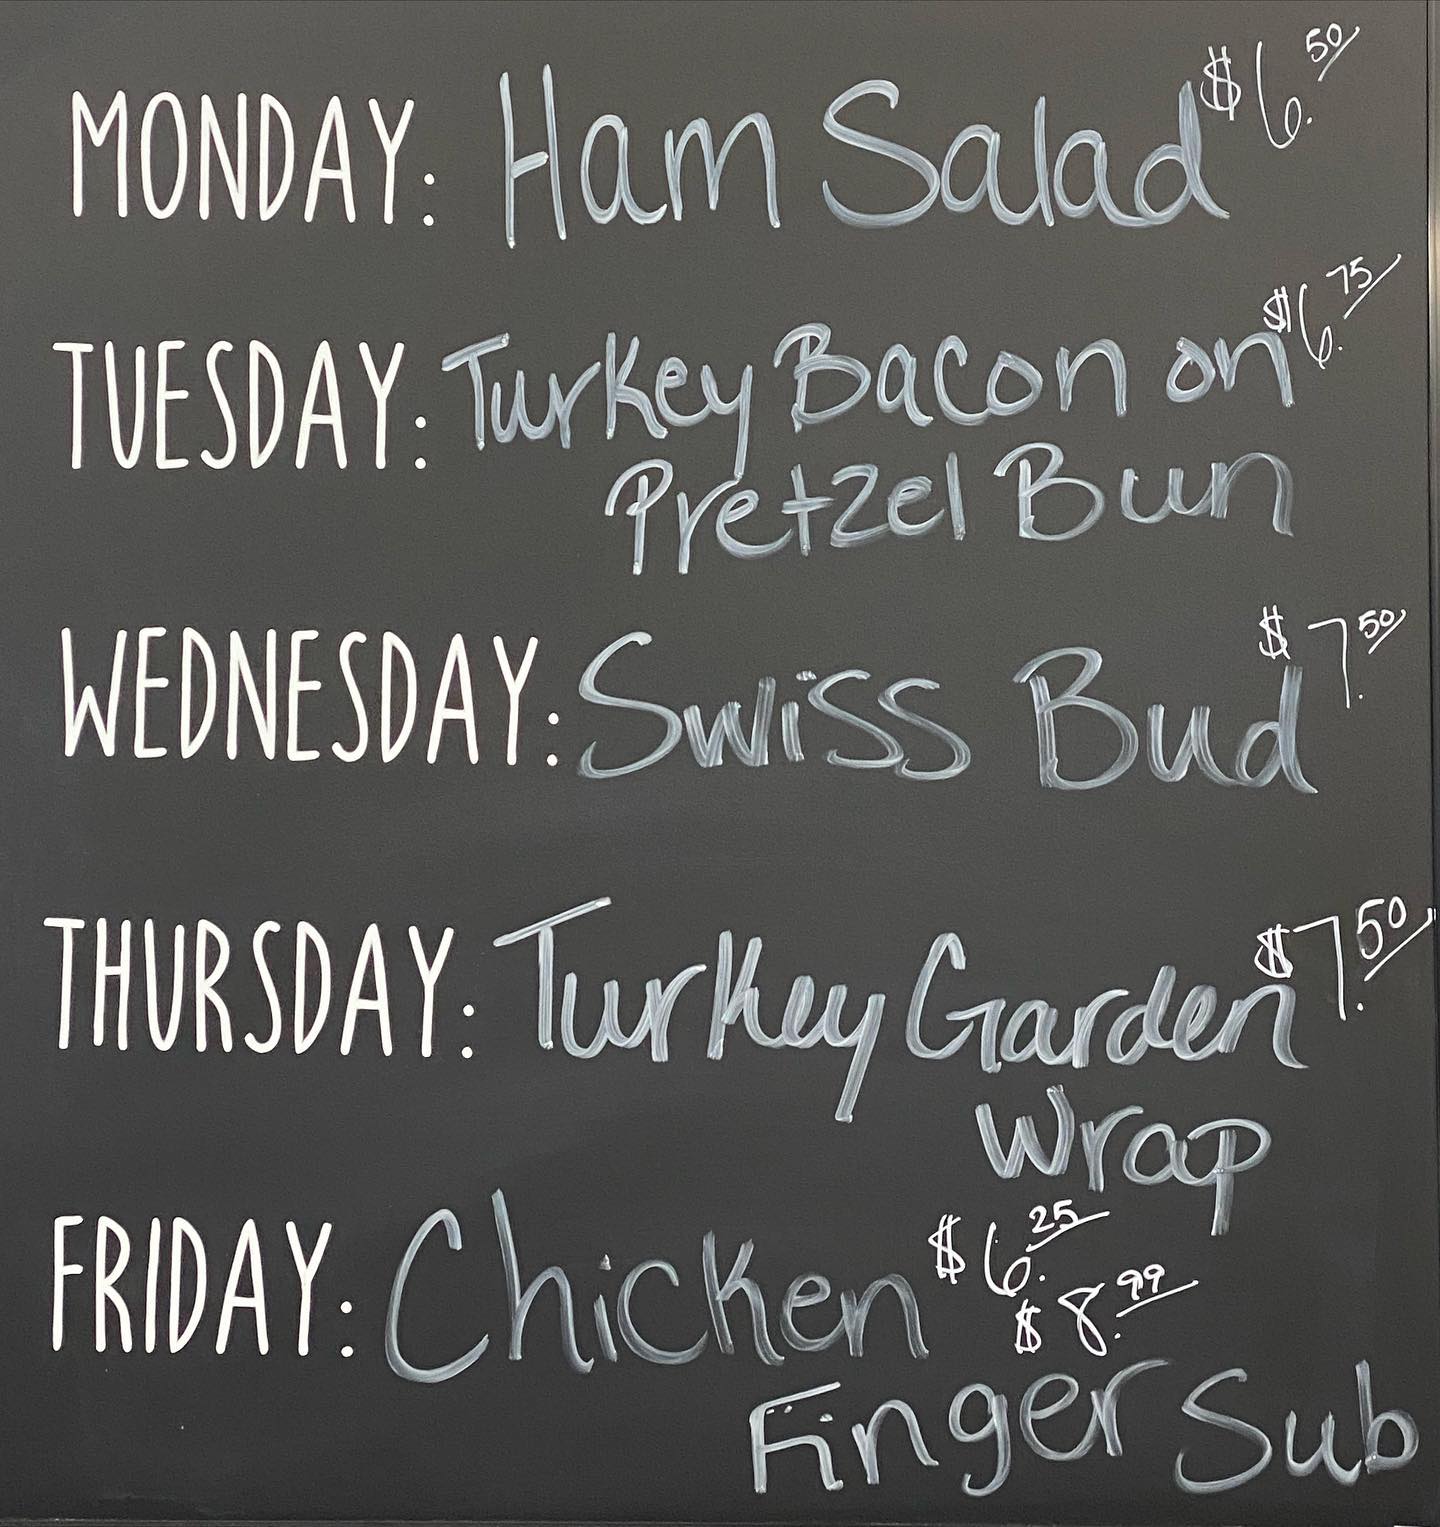 MONDAY: Ham Salad $6.50
TUESDAY: Turkey Bacon on $6.75
Pretzel Bun
WEDNESDAY: Swiss Bud $7.50
THURSDAY: Turkey Garden $7.50
Wrap
FRIDAY: Chicken $6.25
$8.99
Finger Sub